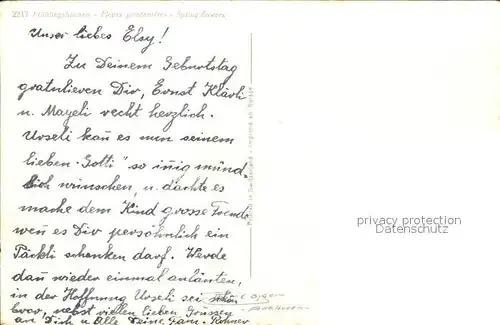 2217 Frühlingsblumen - Fleurs printanières - Spring flowers
Unser liebes Elsy!
Zu Deinem Geburtstag
gratulieren Dir, Ernst Klärli
u. Mayeli recht herzlich.
Urseli kan̄ es nun seinem
lieben "Gotti" so in̄ig münd-
lich wünschen, u. dachte es
mache dem Kind grosse Freude
wen̄ es Dir persöhnlich ein
Päckli schenken darf. Werde
dan̄ wieder einmal anläuten,
in der Hoffnung Urseli sei schön
brav, nebst vielen lieben Grüssen
an Dich u. Alle Deine Fam. Rohner
Printed in Switzerland - Imprimé en Suisse
privacy protection
Datenschutz